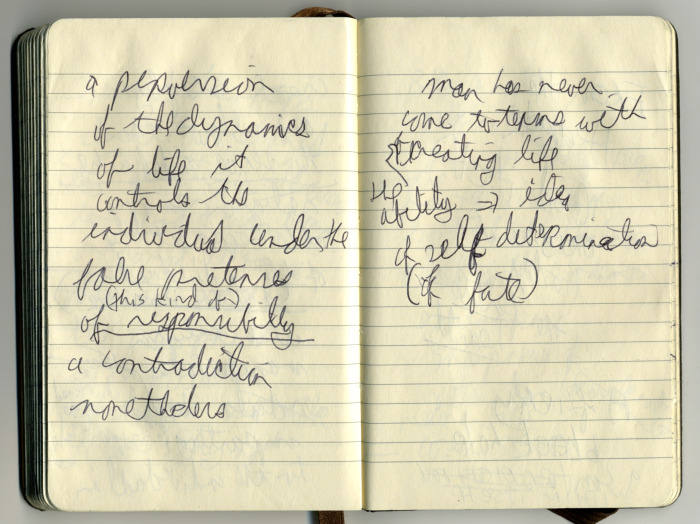 a perversion
of the dynamics
of life it
controls the
individual under the
false pretenses
(this kind of)
of responsibility
a contradiction
nonetheless
man has never
come to terms with
creating life
the
ability ⇒ idea
of self determination
(of fate)